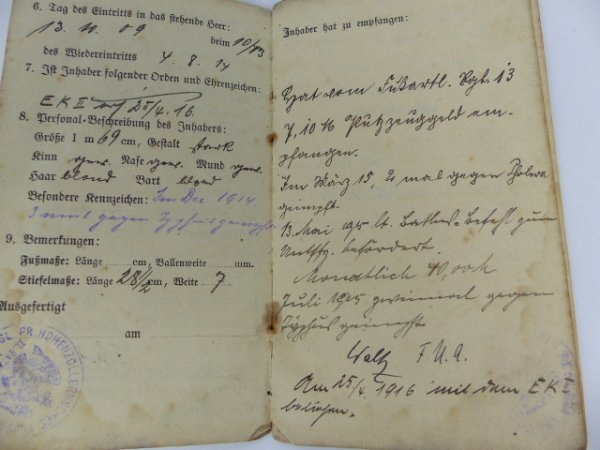 6. Tag des Eintritts in das stehende Heer:
13. 10. 09 beim 10/
des Wiedereintritts 4. 8. 14
7. Ist Inhaber folgender Orden und Ehrenzeichen:
EK II 25/4. 16.
8. Personal-Beschreibung des Inhabers:
Größe 1 m 69 cm, Gestalt stark
Kinn gew. Nase gew. Mund gew.
Haar blond Bart blond
Besondere Kennzeichen: Im Dez 1914
3 mal gegen Typhus geimpft
9. Bemerkungen:
Fußmaße: Länge cm, Ballenweite mm.
Stiefelmaße: Länge 28 1/2 cm, Weite 7
Ausgefertigt
am
HOHENZOLLERNS
Inhaber hat zu empfangen:
Hat vom Fußartl. Rgt. 13
7, 10 M Putzzeuggeld em-
pfangen.
Im März 15, 2 mal gegen Cholera
geimpft.
13. Mai 1915 lt. Batls.-Befehl zum
Untffz. befördert.
Monatlich 40,00 M
Juli 1915 zweimal gegen
Typhus geimpft.
Waltz F.U.A.
Am 25/4. 1916 mit dem EK
beliehen.